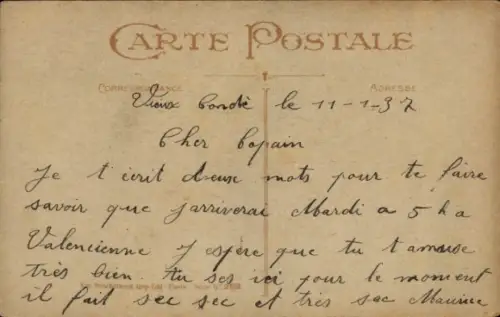 CARTE POSTALE
CORRESPONDANCE ADRESSE
Vieux Condé le 11-1-37
Cher Copain
Je t'écrit deux mots pour te faire
savoir que j'arriverai Mardi a 5 h a
Valencienne j'espère que tu t'amuse
très bien. tu ses ici pour le moment
il fait sec sec et très sec Maurice